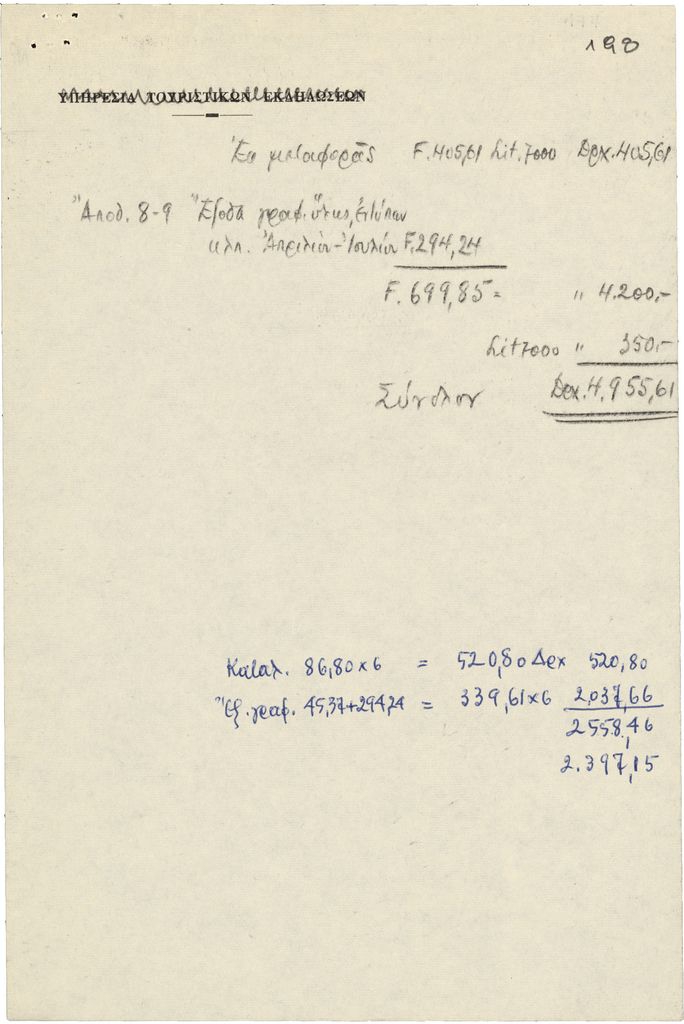 198
ΥΠΗΡΕΣΙΑ ΤΟΥΡΙΣΤΙΚΩΝ ΕΚΔΗΛΩΣΕΩΝ
Ἐκ μεταφορᾶς F. 405,61 Lit. 7000 Δρχ. 405,61
Ἀποδ. 8-9 Ἔξοδα γραφ. ὕλης, ἐντύπων
κλπ. Ἀπριλίου-Ἰουλίου F. 294,24
F. 699,85 = " 4.200,-
Lit 7000 " 350,-
Σύνολον Δρχ. 4.955,61
Καταλ. 86,80 x 6 = 520,80 Δρχ 520,80
Ἔξ. γραφ. 45,37+294,24 = 339,61 x 6 2.037,66
2558,46
2.397,15